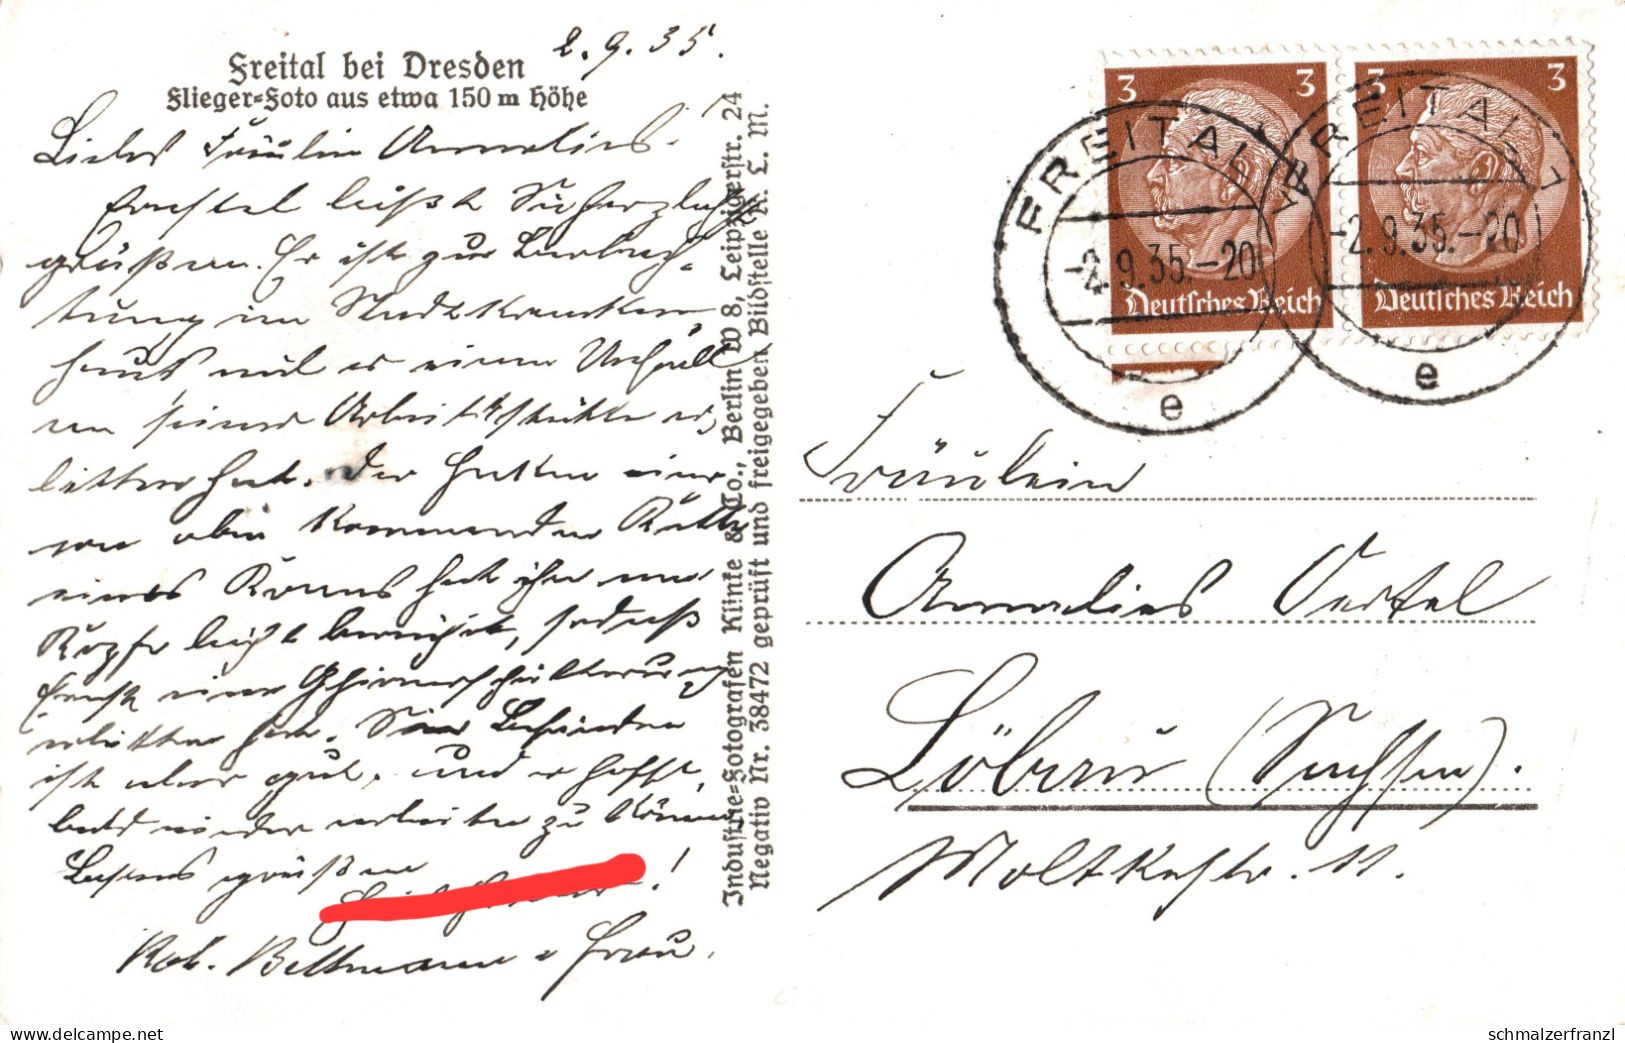 2.9.35.
Freital bei Dresden
Flieger-Foto aus etwa 150 m Höhe
Liebes Fräulein Annelies.
Ernstel läßt Sie herzlichst
grüßen. Er ist zur Beobach-
tung im Stadtkranken
haus weil er einen Unfall
an seiner Arbeitsstätte er-
litten hat. Der Haken einer
von oben kommenden Kette
eines Krans hat ihn am
Kopfe leicht berührt, sodaß
Ernst eine Gehirnerschütterung
erlitten hat. Sein Befinden
ist aber gut, und er hofft,
bald wieder arbeiten zu können
Bestens grüßen
!
Rob. Bellmann u Frau.
Industrie-Fotografen Klinke & Co., Berlin W 8, Leipzigerstr. 24
Negativ Nr. 38472 geprüft und freigegeben Bildstelle R. L. M.
3 3
Deutsches Reich
3 3
Deutsches Reich
FREITAL 1
-2.9.35.-20
e
FREITAL 1
-2.9.35.-20
e
Fräulein
Annelies Oertel
Löbau (Sachsen).
Moltkestr. 11.
schmalzerfranzl
www.delcampe.net